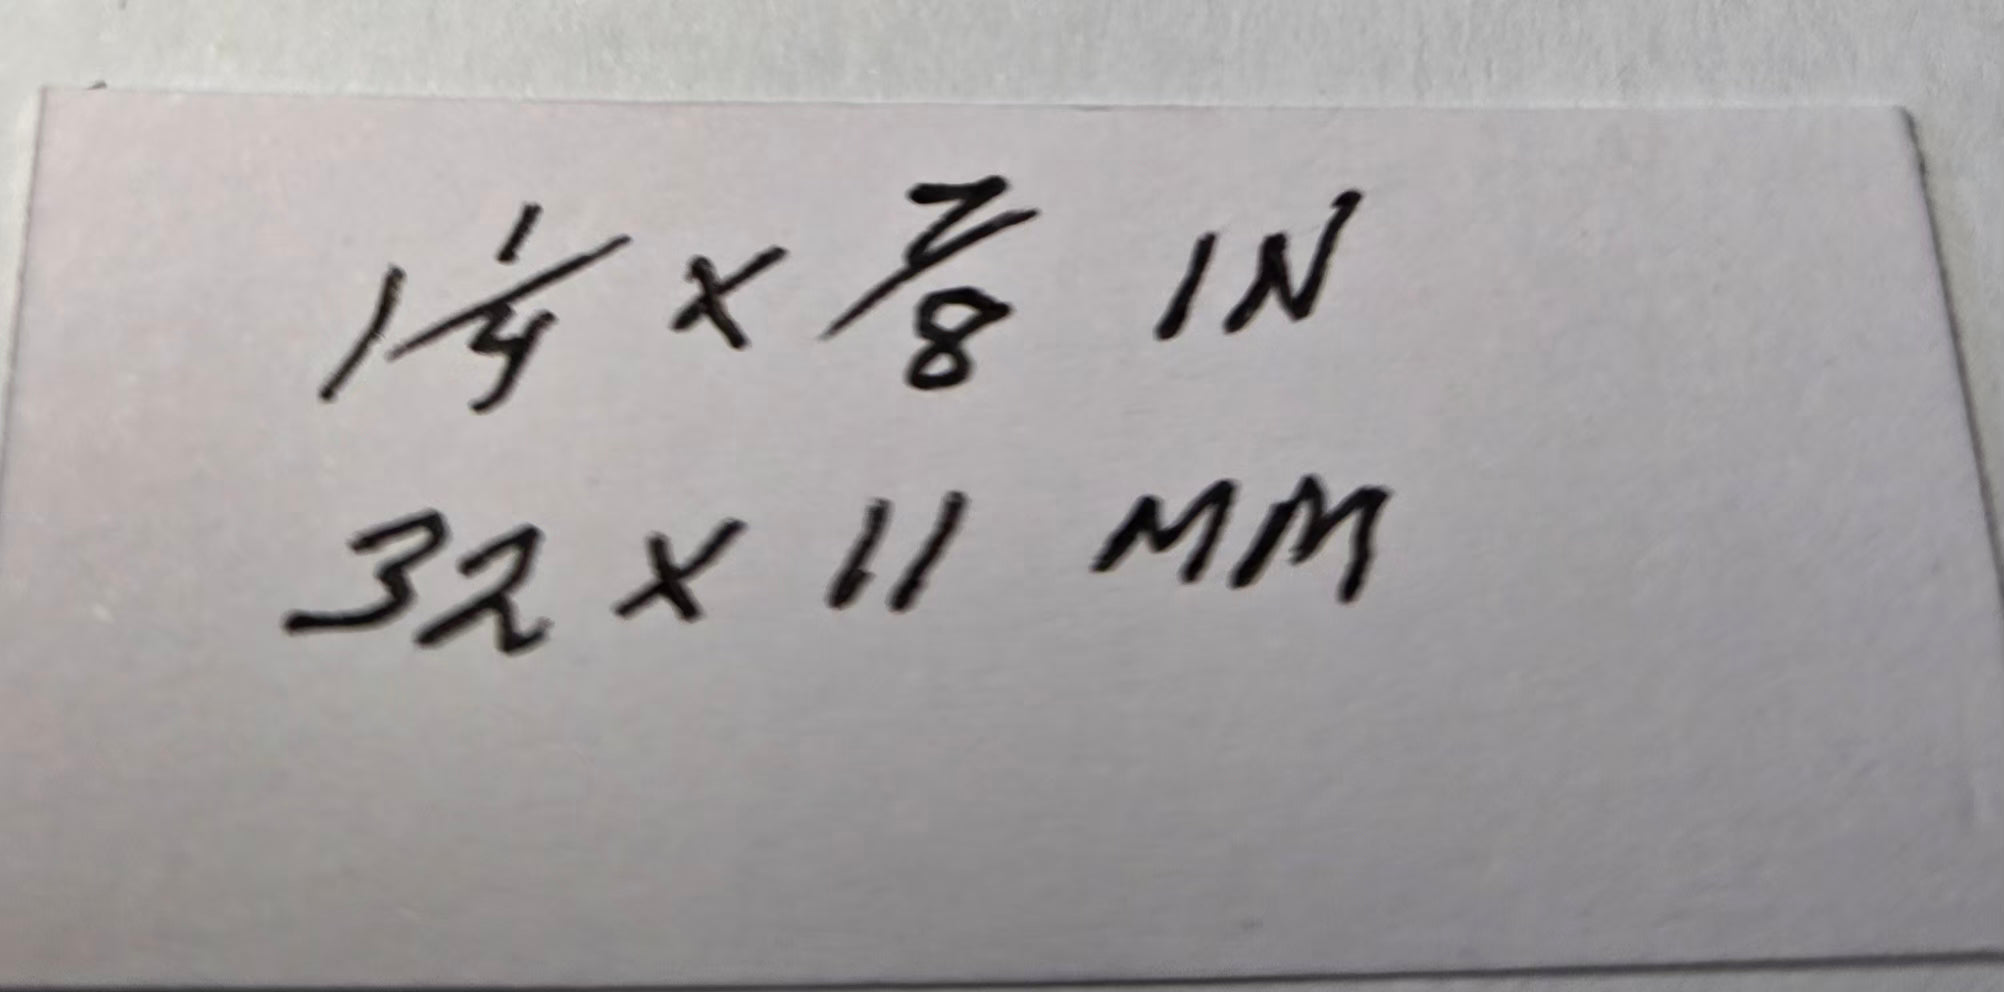 1 1/4 x 7/8 IN
32 x 11 MM